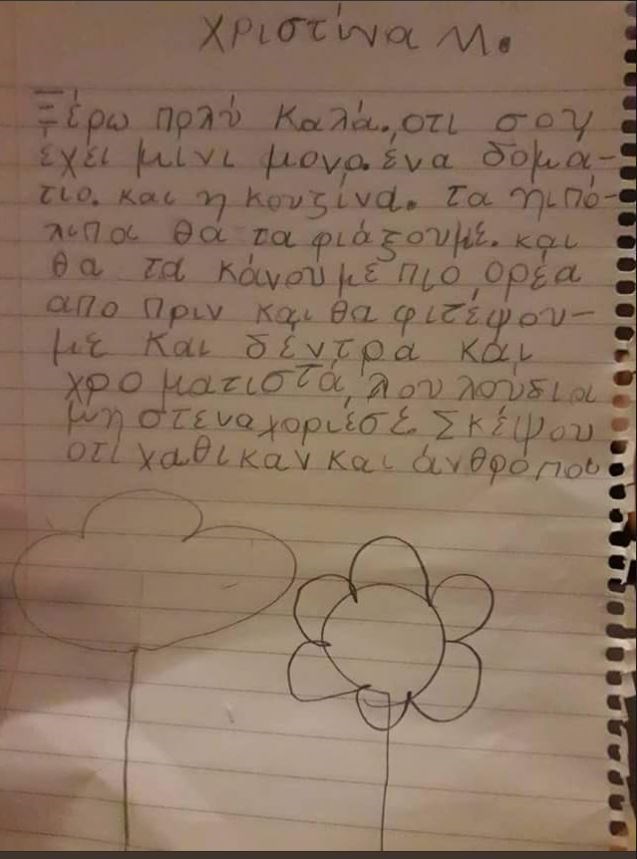 χριστίνα Μ.
Ξέρω πολύ καλά. οτι σου
έχει μίνι μονο. ένα δομα-
τιο. και η κουζίνα. τα ηπό-
λιπα θα τα φιάξουμε. και
θα τα κάνουμε πιο ορέα
απο πριν και θα φιτέψου-
με και δέντρα και
χροματιστά λουλούδια
μη στεναχοριέσε. Σκέψου
οτι χαθικαν και άνθροποι